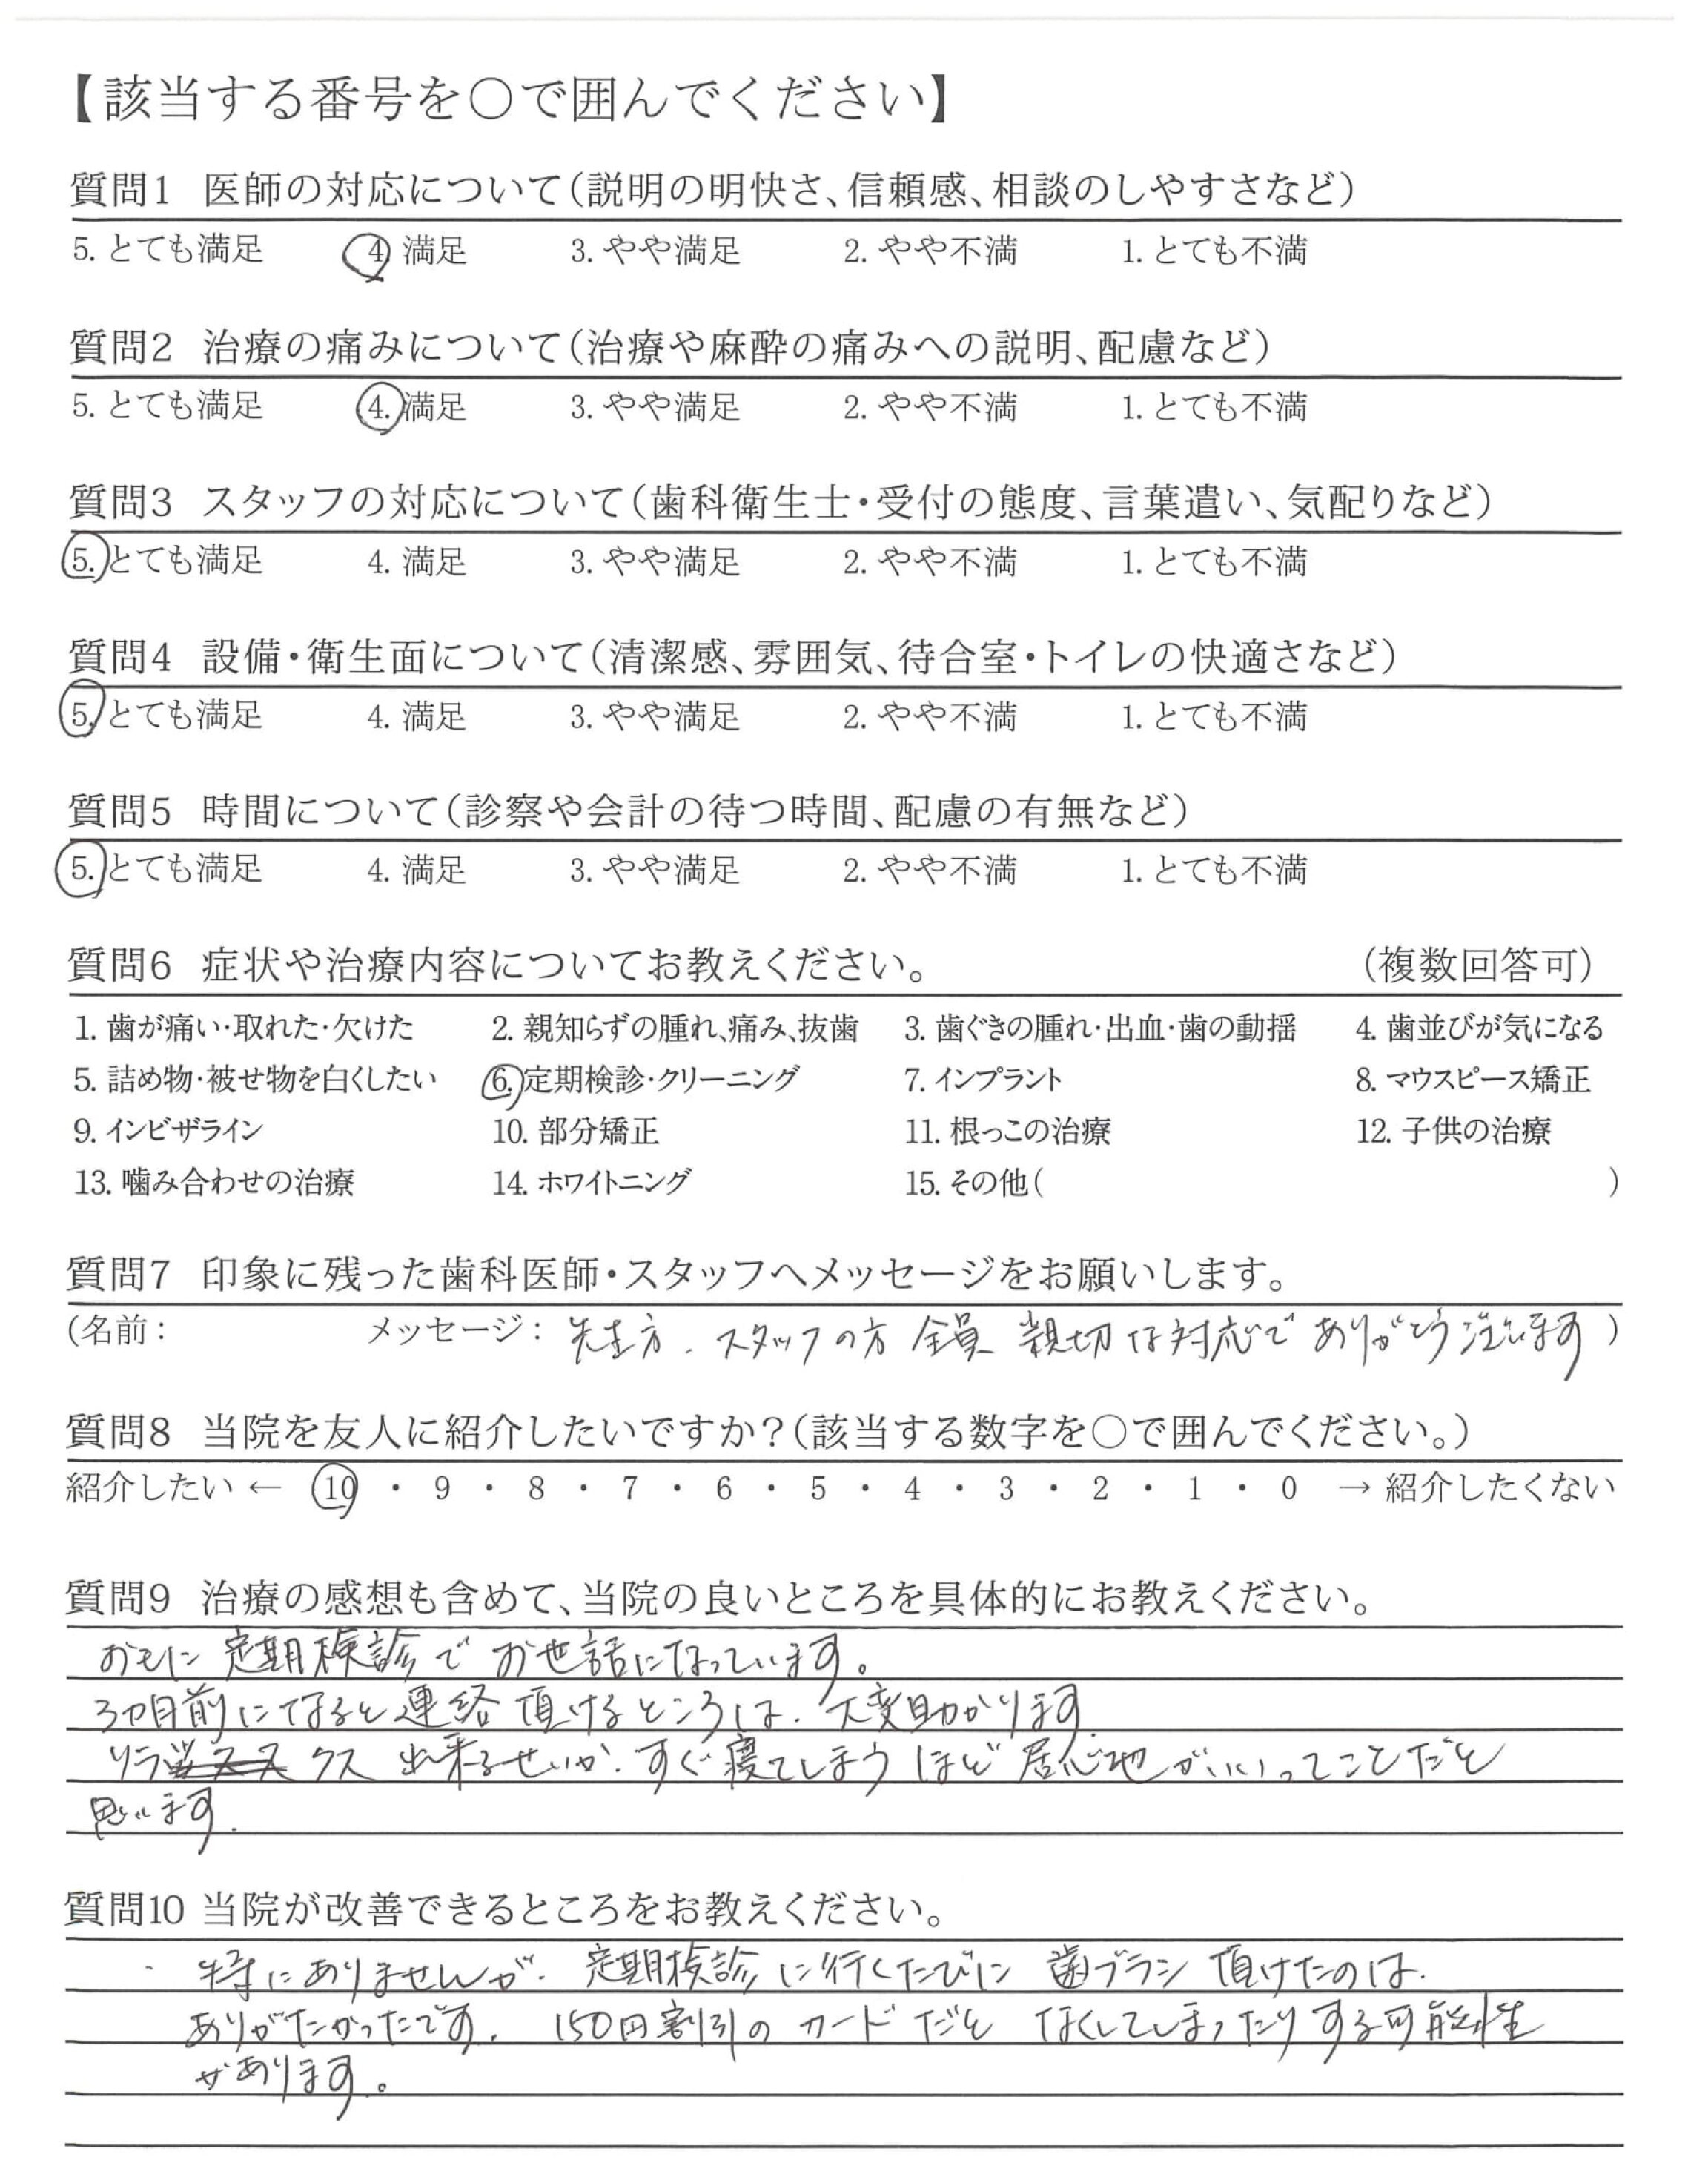 【該当する番号を○で囲んでください】
質問1 医師の対応について(説明の明快さ、信頼感、相談のしやすさなど)
5. とても満足 4. 満足 3. やや満足 2. やや不満 1. とても不満
質問2 治療の痛みについて(治療や麻酔の痛みへの説明、配慮など)
5. とても満足 4. 満足 3. やや満足 2. やや不満 1. とても不満
質問3 スタッフの対応について(歯科衛生士・受付の態度、言葉遣い、気配りなど)
5. とても満足 4. 満足 3. やや満足 2. やや不満 1. とても不満
質問4 設備・衛生面について(清潔感、雰囲気、待合室・トイレの快適さなど)
5. とても満足 4. 満足 3. やや満足 2. やや不満 1. とても不満
質問5 時間について(診察や会計の待つ時間、配慮の有無など)
5. とても満足 4. 満足 3. やや満足 2. やや不満 1. とても不満
質問6 症状や治療内容についてお教えください。 (複数回答可)
1. 歯が痛い・取れた・欠けた 2. 親知らずの腫れ、痛み、抜歯 3. 歯ぐきの腫れ・出血・歯の動揺 4. 歯並びが気になる
5. 詰め物・被せ物を白くしたい 6. 定期検診・クリーニング 7. インプラント 8. マウスピース矯正
9. インビザライン 10. 部分矯正 11. 根っこの治療 12. 子供の治療
13. 噛み合わせの治療 14. ホワイトニング 15. その他( )
質問7 印象に残った歯科医師・スタッフへメッセージをお願いします。
(名前: メッセージ: 先生方、スタッフの方 全員 親切な対応で ありがとうございます )
質問8 当院を友人に紹介したいですか?(該当する数字を○で囲んでください。)
紹介したい ← 10 ・ 9 ・ 8 ・ 7 ・ 6 ・ 5 ・ 4 ・ 3 ・ 2 ・ 1 ・ 0 → 紹介したくない
質問9 治療の感想も含めて、当院の良いところを具体的にお教えください。
おもに 定期検診で お世話になっています。
3ヵ月前になると連絡 頂けるところは、大変助かります
リラックス 出来るせいか、すぐ寝てしまう ほど 居心地がいいってことだと
思います.
質問10 当院が改善できるところをお教えください。
・ 特にありませんが、定期検診に行くたびに 歯ブラシ 頂けたのは、
ありがたかったです。150円割引の カードだと なくしてしまったりする可能性
があります。